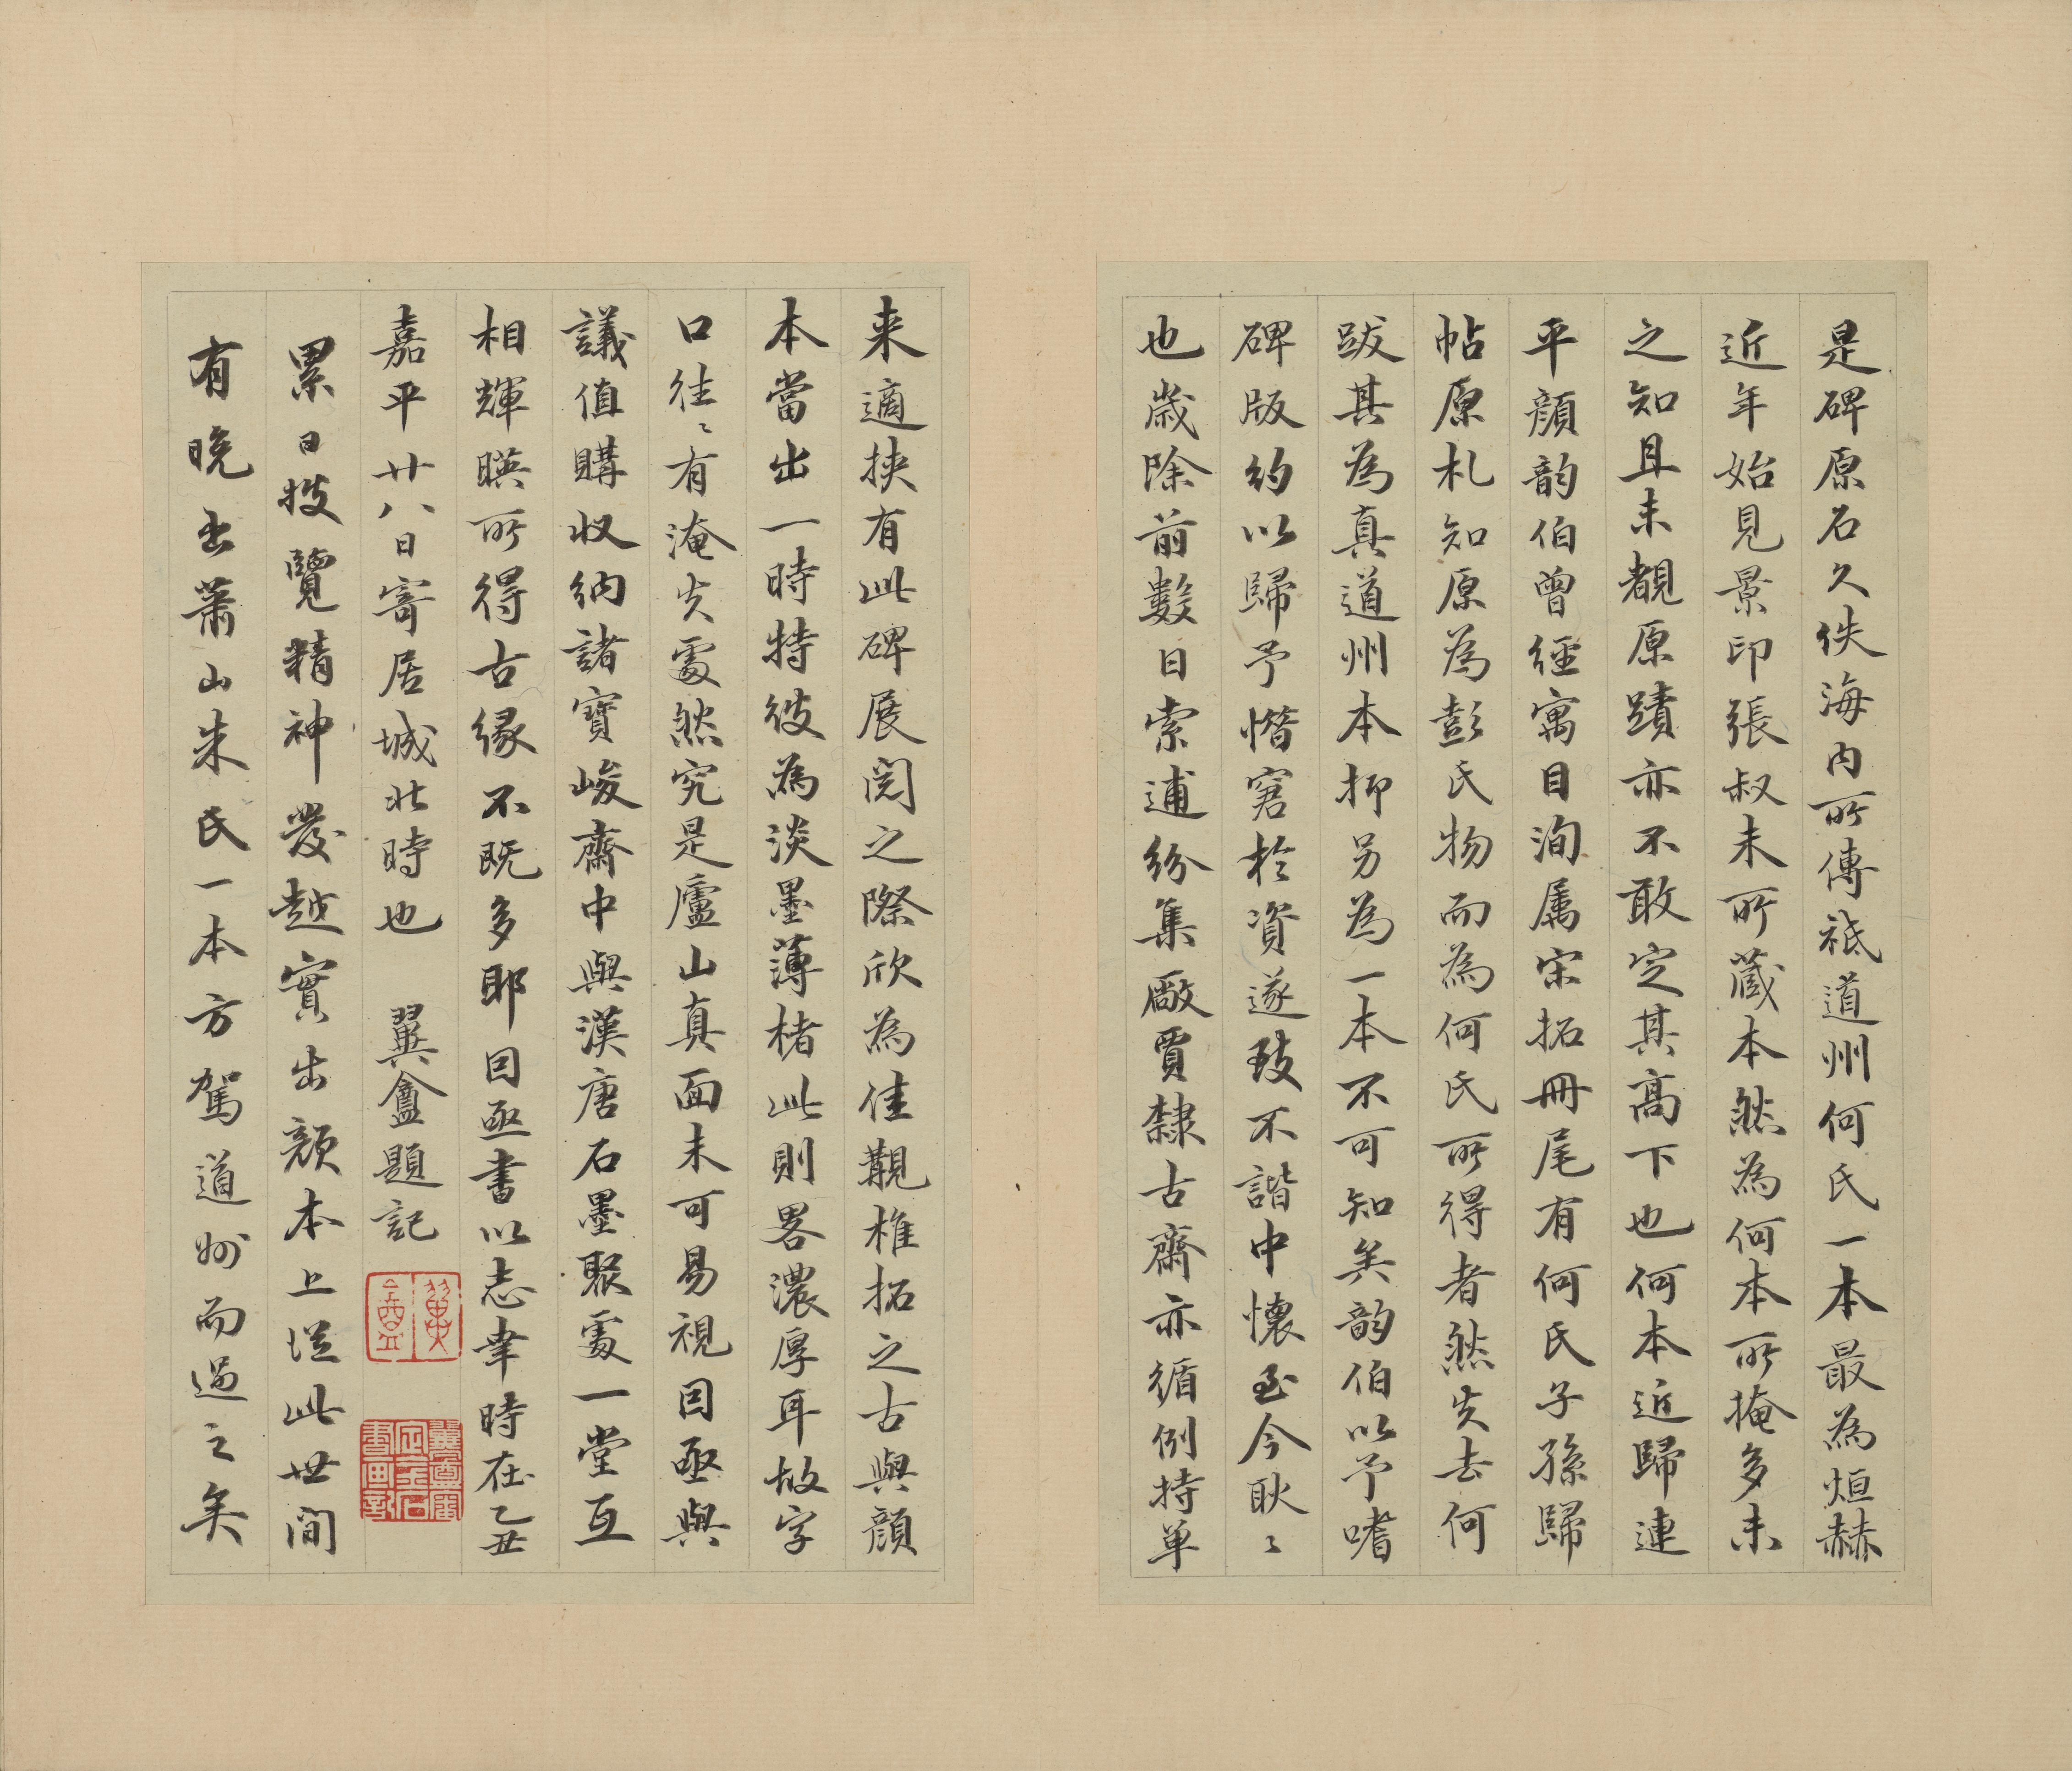 是碑原石久佚海内所傳祗道州何氏一本最為烜赫
近年始見景印張叔未所藏本然為何本所掩多未
之知且未覩原蹟亦不敢定其高下也何本近歸連
平顏韵伯曾經寓目洵属宋拓冊尾有何氏子孫歸
帖原札知原為彭氏物而為何氏所得者然失去何
跋其為真道州本抑另為一本不可知矣韵伯以予嗜
碑版約以歸予惜窘於資遂致不諧中懷至今耿〻
也歲除前數日索逋紛集廠賈隸古齋亦循例持单
来適挾有此碑展閱之際欣為佳覯椎拓之古與顏
本當出一時特彼為淡墨薄楮此則畧濃厚耳故字
口往〻有淹失處然究是廬山真面未可易視因亟與
議值購收納諸寶峻齋中與漢唐石墨聚處一堂互
相輝暎所得古緣不既多耶因亟書以志幸時在乙丑
嘉平廿八日寄居城北時也 翼盦題記
翼盦
翼盦審定金石書画記
累日披覽精神發越實出顏本上從此世間
有晚出蕭山朱氏一本方駕道州而過之矣